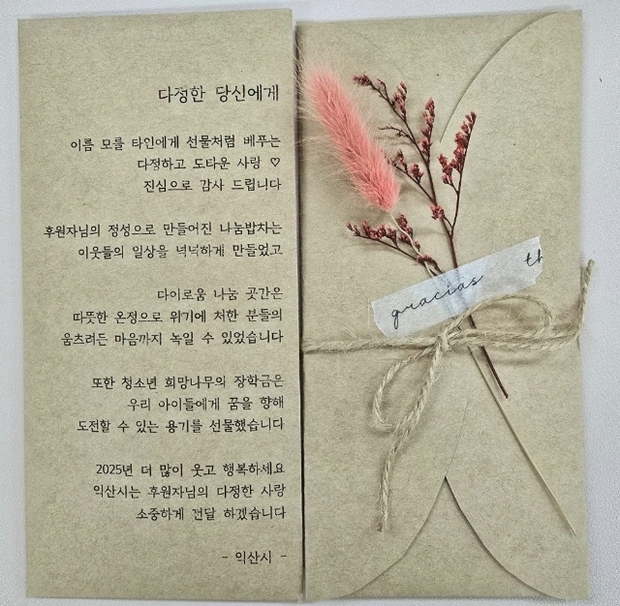 다정한 당신에게
이름 모를 타인에게 선물처럼 베푸는
다정하고 도타운 사랑 ♡
진심으로 감사 드립니다
후원자님의 정성으로 만들어진 나눔밥차는
이웃들의 일상을 넉넉하게 만들었고
다이로움 나눔 곳간은
따뜻한 온정으로 위기에 처한 분들의
움츠려든 마음까지 녹일 수 있었습니다
또한 청소년 희망나무의 장학금은
우리 아이들에게 꿈을 향해
도전할 수 있는 용기를 선물했습니다
2025년 더 많이 웃고 행복하세요
익산시는 후원자님의 다정한 사랑
소중하게 전달 하겠습니다
- 익산시 -
gracias th